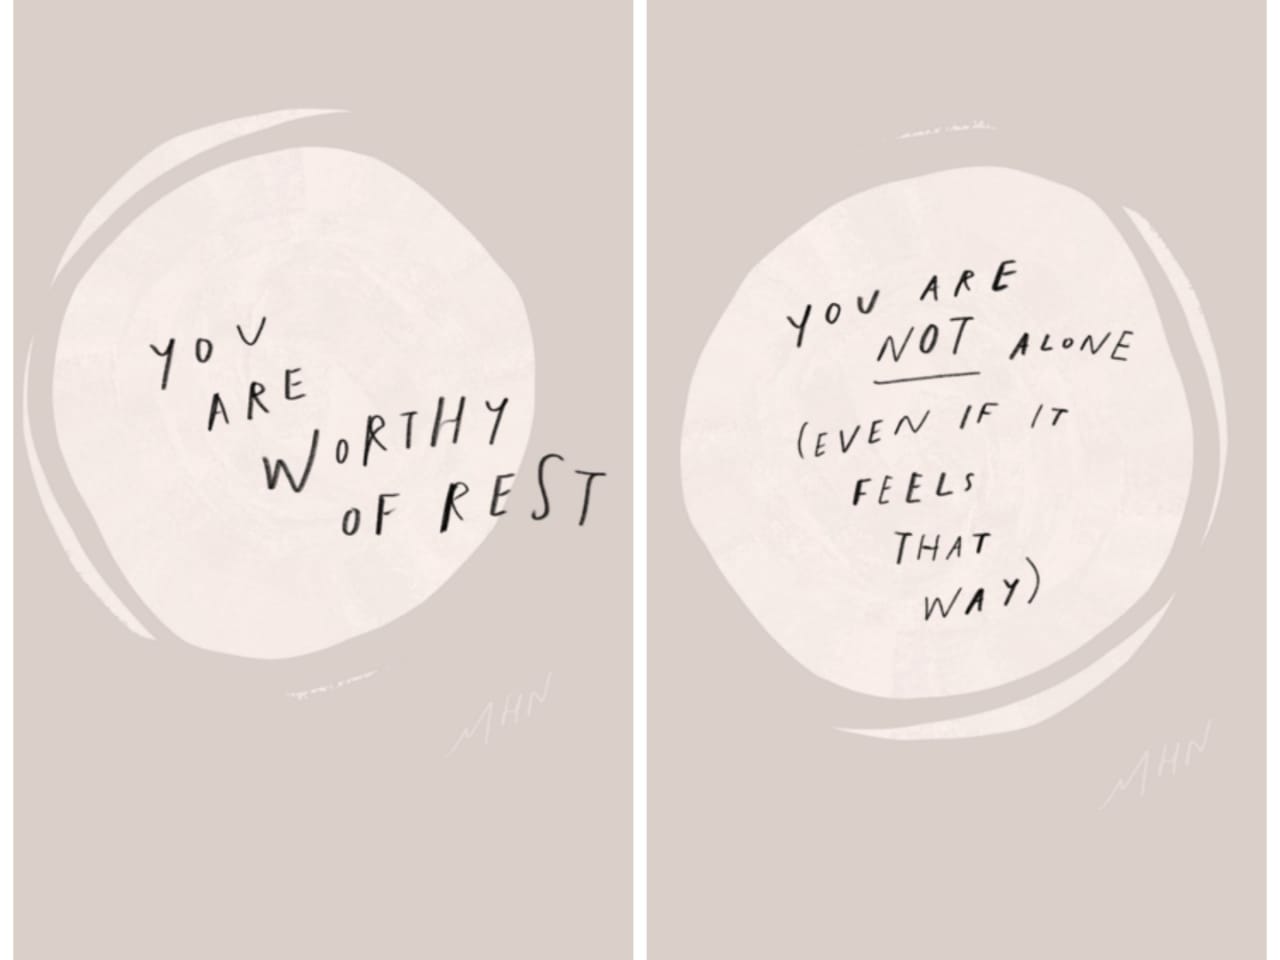 YOU
ARE
WORTHY
OF REST
MHN
YOU ARE
NOT ALONE
(EVEN IF IT
FEELS
THAT
WAY)
MHN